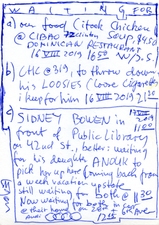 WAITING FOR
a) our food (Stock Chicken
@ CIBAO Soup $9.50
DOMINICAN RESTAURANT
16 VIII 2019 1650 W/J.S.
b) LHC @ 319, to throw down
his LOOSIES (loose cigarettes
i keep for him 16 VIII 2019 21
c) SIDNEY BOWEN in 1100
front of Public Library
on 42nd St., better: waiting
for his daughter ANOUK to
pick her up here coming back from
a week vacation upstate
still waiting for both @ 1130
Now waiting for both in car
@ their hotel on 26th &
6th Ave